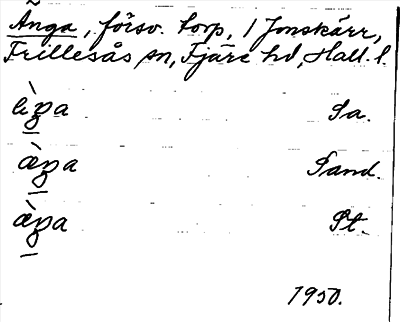 Ånga, försv. torp, / Jonskärr,
Frillesås sn, Fjäre hd, Hall. l.
Sa.
Sand.
St.
1950.